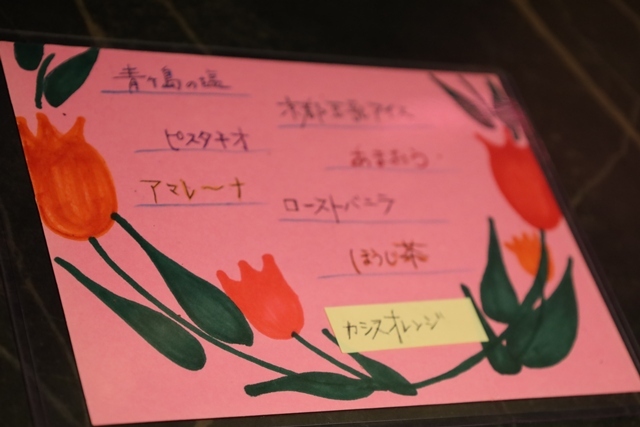 青ヶ島の塩
アイス
ピスタチオ
あまおう
アマレーナ
ローストバニラ
ほうじ茶
カシスオレンジ